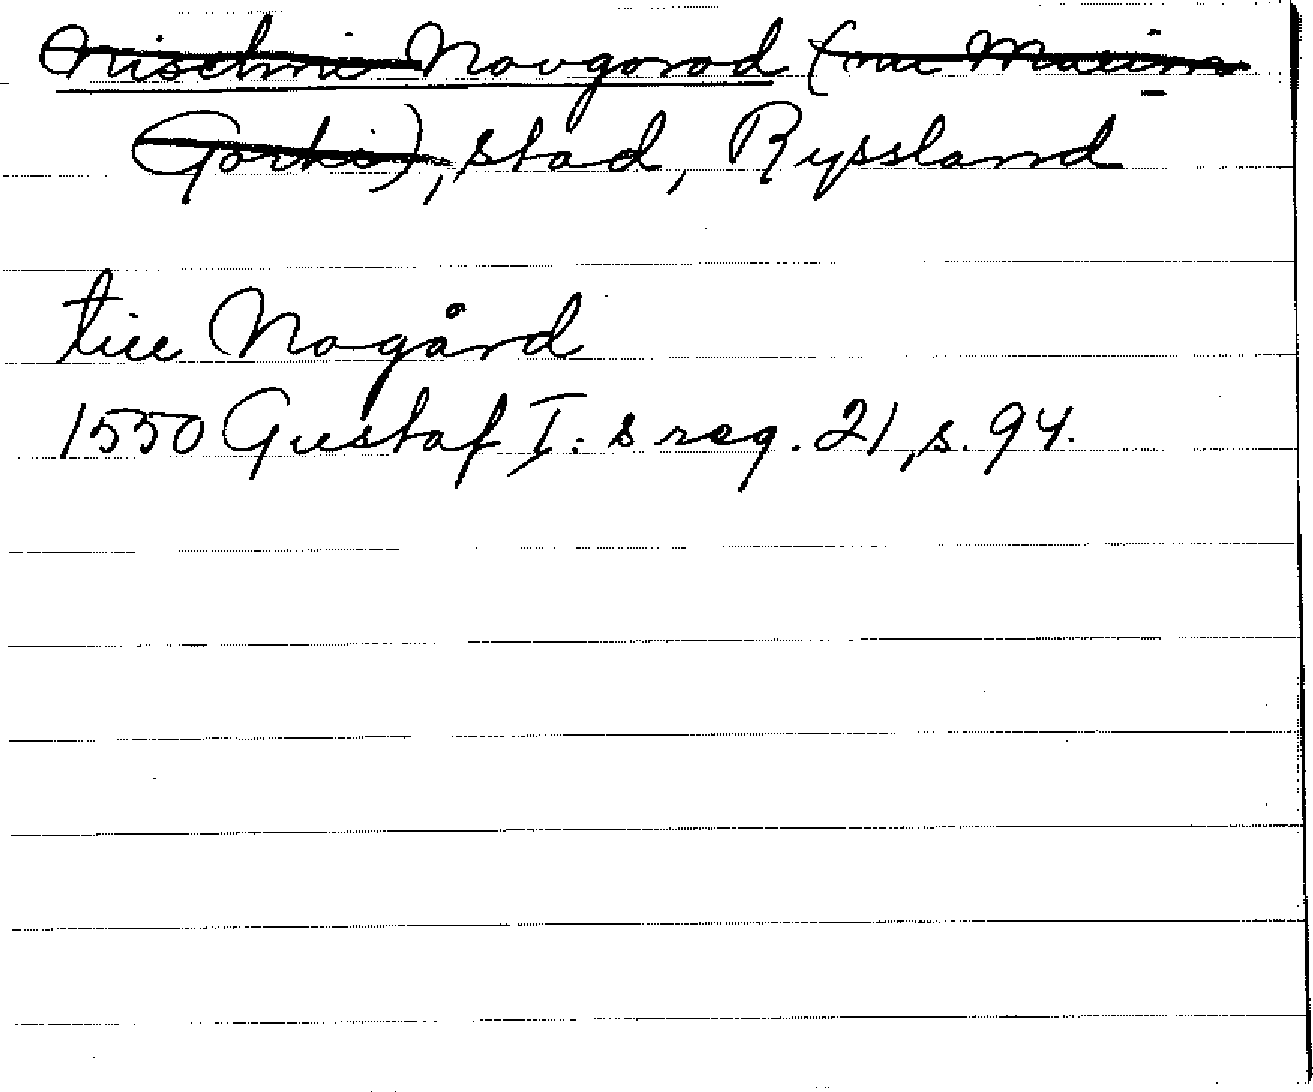 Nischni Novgorod (nu Maxim
Gorki), stad, Ryssland
till Nogård
1550 Gustaf I:s reg. 21, s. 94.